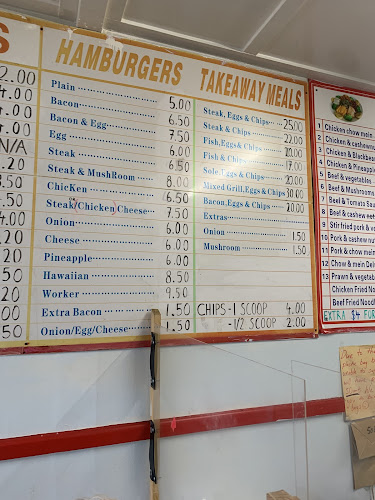 S
2.00
4.00
4.00
N/A
.20
.50
4.00
.00
.20
.20
.50
HAMBURGERS
Plain 5.00
Bacon 6.50
Bacon & Egg 7.50
Egg 6.00
Steak 6.50
Steak & MushRoom 8.00
ChicKen 6.50
Steak(Chicken)Cheese 7.50
Onion 6.00
Cheese 6.00
Pineapple 6.00
Hawaiian 8.50
Worker 9.50
Extra Bacon 1.50
Onion/Egg/Cheese 1.50
TAKEAWAY MEALS
Steak, Eggs & Chips 25.00
Steak & Chips 22.00
Fish,Eggs & Chips 20.00
Fish & Chips 17.00
Sole,Eggs & Chips 20.00
Mixed Grill,Eggs & Chips 30.00
Bacon,Eggs & Chips 20.00
Extras
Onion 1.50
Mushroom 1.50
CHIPS -1 SCOOP 4.00
-1/2 SCOOP 2.00
1 Chicken chow mein
2 Chicken & cashew
3 Chicken & Blackbea
4 Chicken & Pineapple
5 Beef & vegetables
6 Beef & Mushrooms
7 Beef & Tomato Sau
8 Beef & cashew
9 Stir fried pork &
10 Pork & cashew nut
11 Pork & chow mein
12 Chow & mein Del
13 Prawn & vegetab
Chicken Fried No
Beef Fried Nood
EXTRA $4 FOR